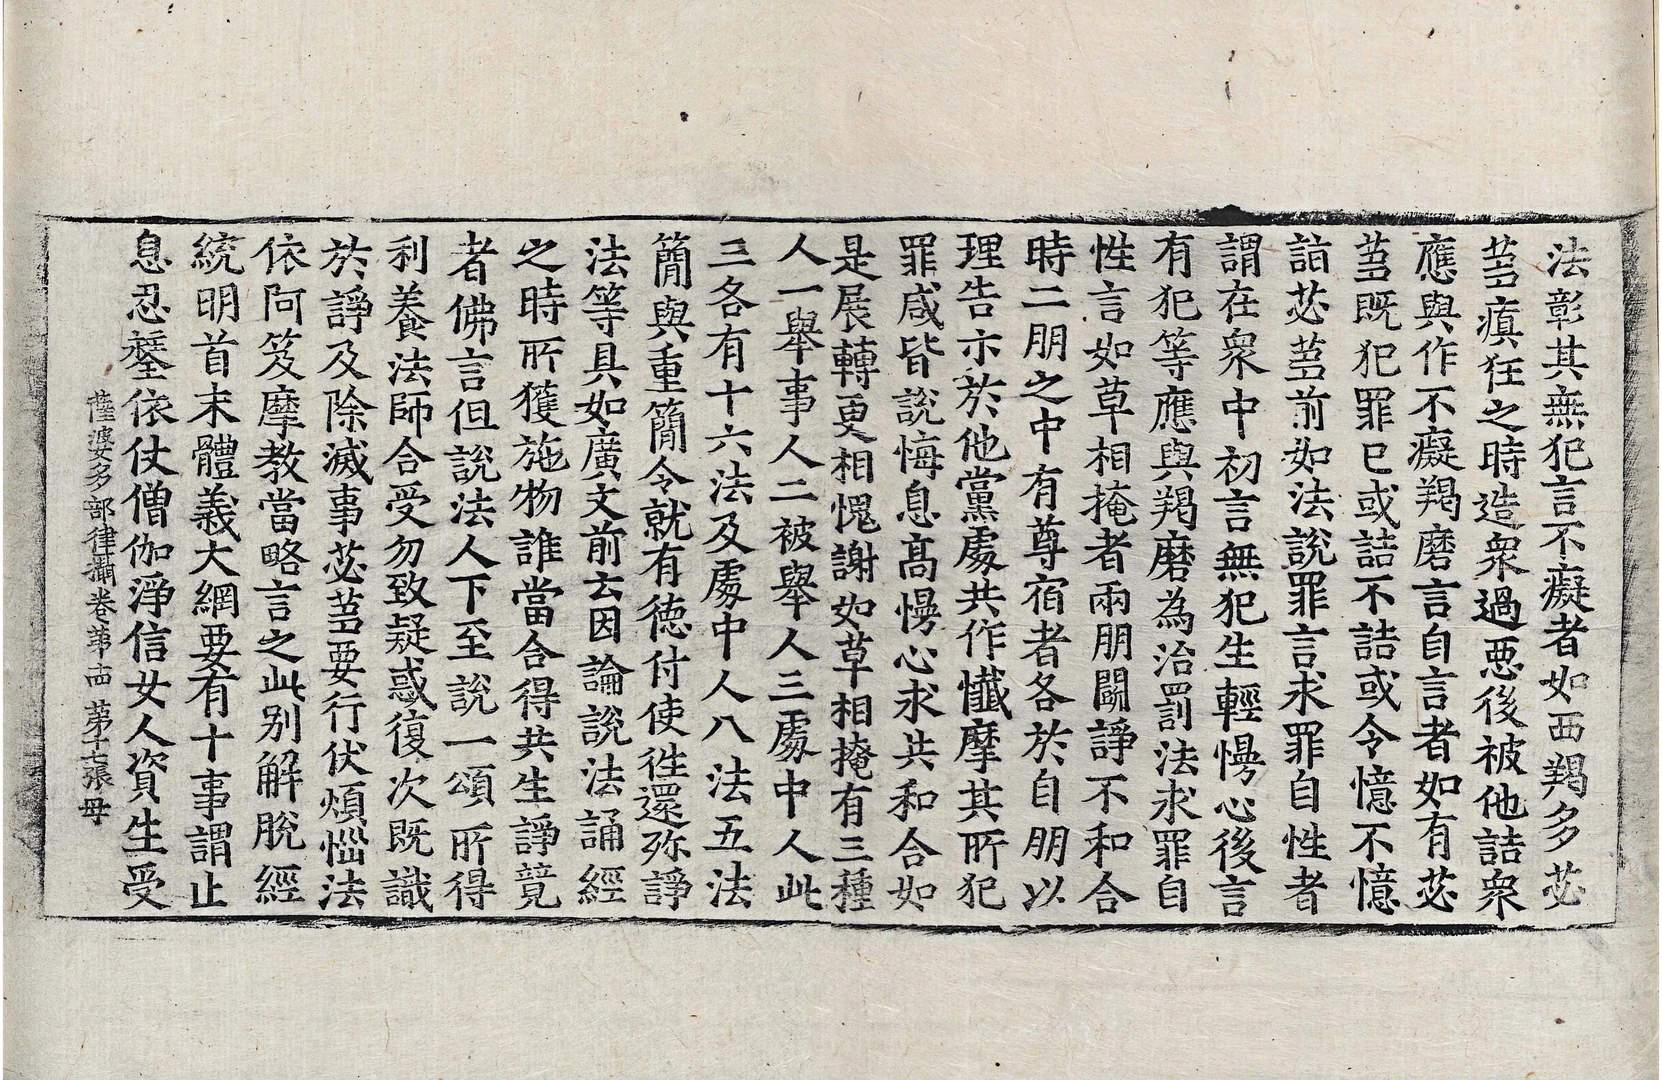 法彰其無犯言不癡者如西羯多苾
芻瘨狂之時造衆過惡後被他詰衆
應與作不癡羯磨言自言者如有苾
芻既犯罪已或詰不詰或令憶不憶
詣苾芻前如法說罪言求罪自性者
謂在衆中初言無犯生輕慢心後言
有犯等應與羯磨為治罰法求罪自
性言如草相掩者兩朋鬪諍不和合
時二朋之中有尊宿者各於自朋以
理告示於他黨處共作懺摩其所犯
罪咸皆說悔息高慢心求共和合如
是展轉更相愧謝如草相掩有三種
人一舉事人二被舉人三處中人此
三各有十六法及處中人八法五法
簡與重簡令就有德付使徃還殄諍
法等具如廣文前云因論說法誦經
之時所獲施物誰當合得共生諍競
者佛言但說法人下至說一頌所得
利養法師合受勿致疑惑復次既識
於諍及除滅事苾芻要行伏煩惱法
依阿笈摩教當略言之此別解脫經
統明首末體義大綱要有十事謂止
息忍[?]依仗僧伽淨信女人資生受
薩婆多部律攝卷第十四 第十七張 母